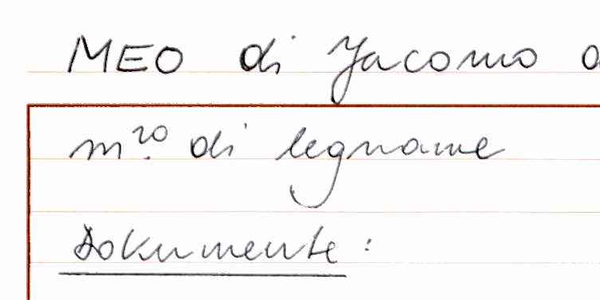 MEO di Jacomo
m.ro di legname
Dokumente: